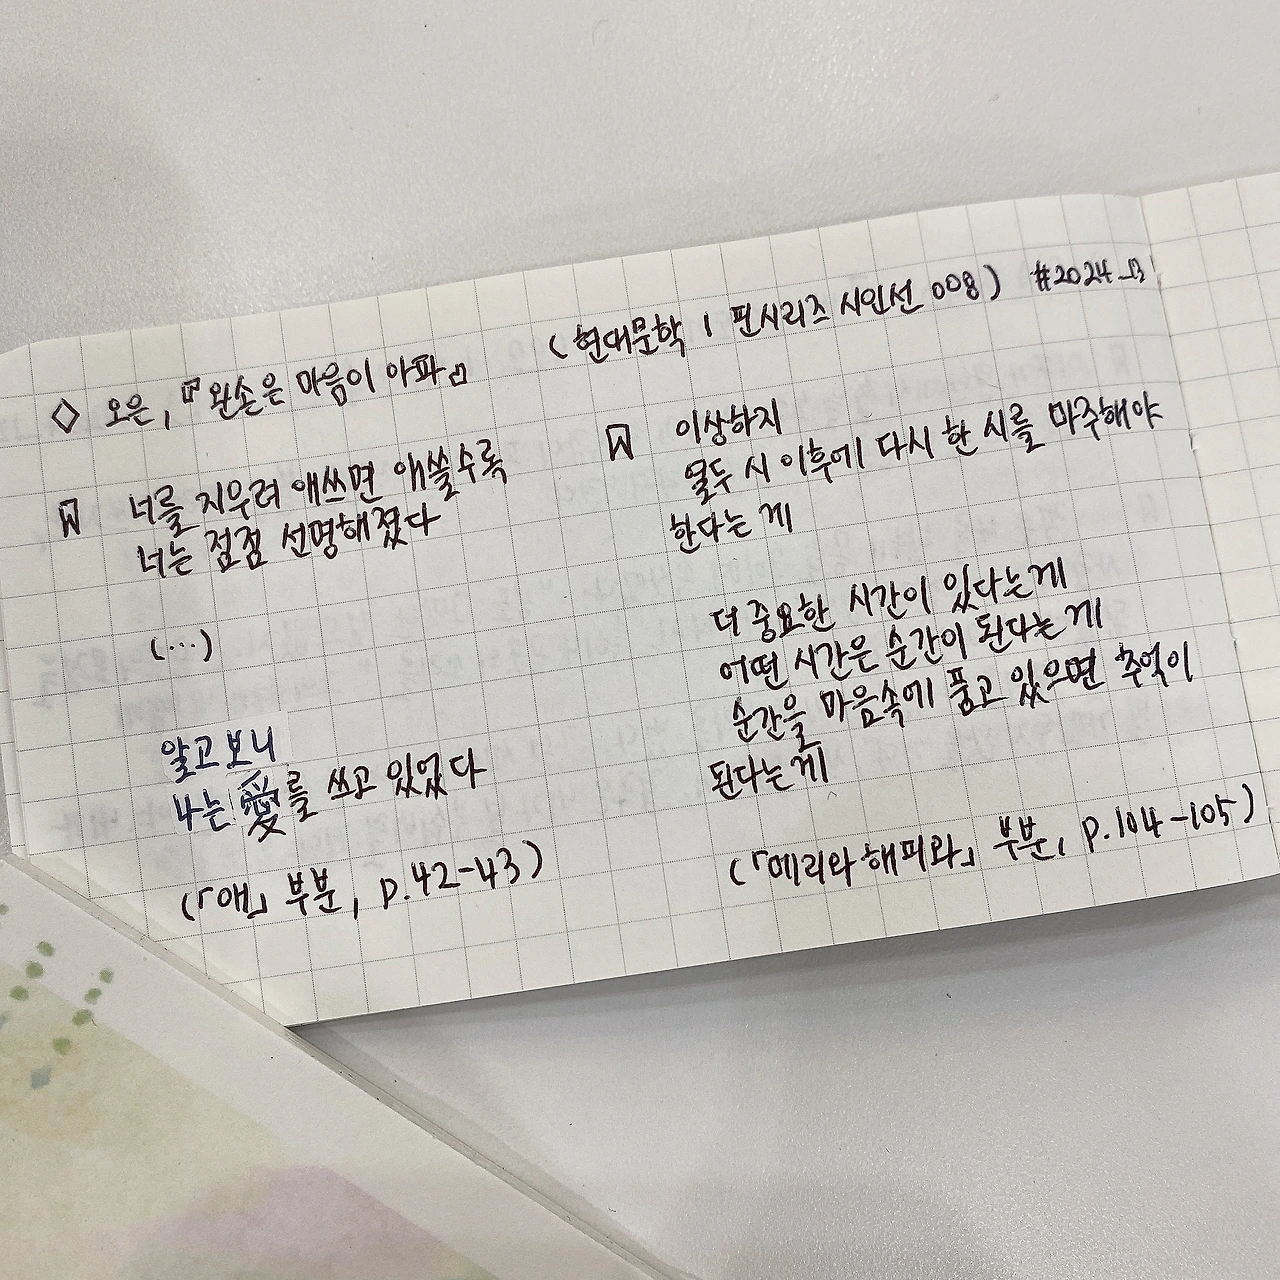 ◇ 오은, 『왼손은 마음이 아파』 (현대문학 | 핀시리즈 시인선 008) #2024_13
너를 지우려 애쓰면 애쓸수록
너는 점점 선명해졌다
(…)
알고보니
나는 愛를 쓰고 있었다
(「애」 부분, p.42-43)
이상하지
열두 시 이후에 다시 한 시를 마주해야
한다는 게
더 중요한 시간이 있다는게
어떤 시간은 순간이 된다는 게
순간을 마음속에 품고 있으면 추억이
된다는게
(「메리와 해피와」 부분, p.104-105)